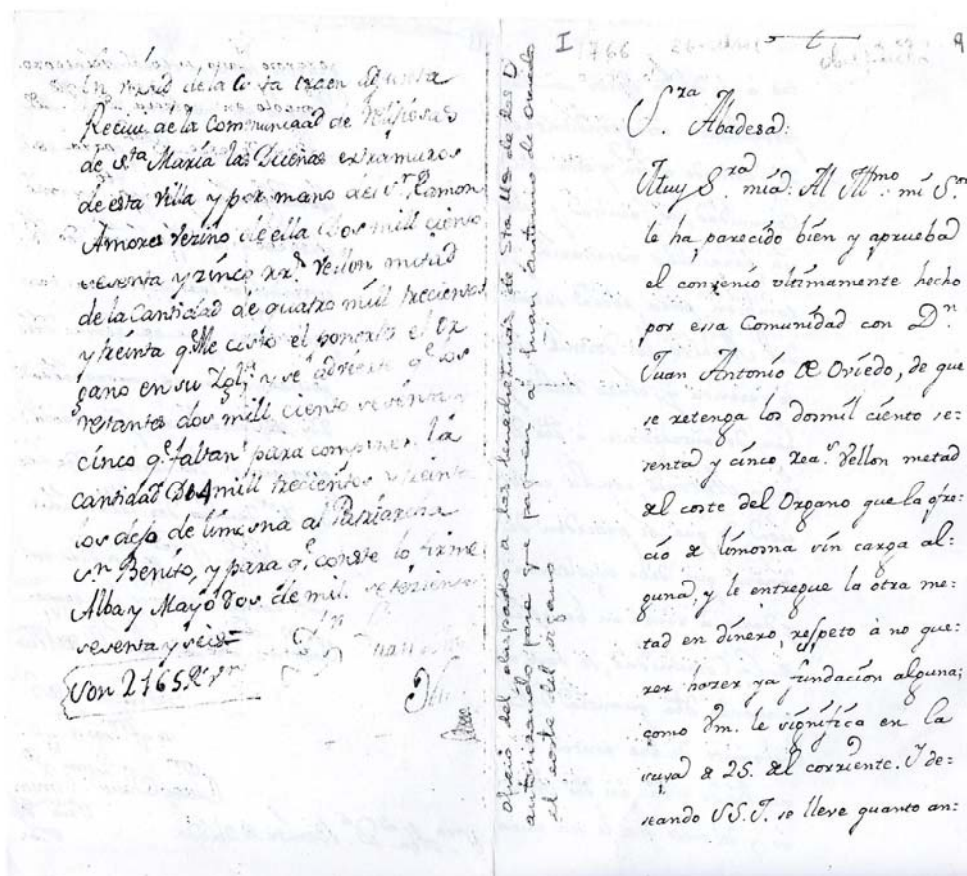 En virtud de la Carta Orden adjunta
Reciui de la Communidad de Relijiosas
de Sta María las Dueñas extramuros
de esta Villa y por mano del Sr. Ramon
Amores Vezino de ella dos mill ciento
sesenta y zinco rrs. Vellon, mitad
de la Cantidad de quatro mill treccientos
y treinta q.e Me costo el ponerles el Or
gano en su Iglª. y se advierte q.e los
restantes dos mill ciento sesenta y
cinco q.e faltan para completar la
cantidad De 4 mill treccientos y treinta
los dejo de limosna al Patriarcha
Sn. Benito, y para q.e conste lo firme
Alba y Mayo dos de mil setecientos
sesenta y seis=
Son 2165 Rs. vn
Oficio del obispado a las bedictinas de Sta Mª de las D.
autorizandolas para que paguen a Juan Antonio de Oviedo
el coste del organo
I
1766
Sra Abadesa:
Muy Sra mia: Al Illmo. mi Sor
le ha parecido bien y aprueba
el convenio vltimamente hecho
por essa Comunidad con Dn.
Juan Antonio de Oviedo, de que
se retenga los dosmil ciento se=
senta y cinco rea.s Vellon metad
del coste del Organo que la ofre=
ció de limosna sin carga al=
guna, y le entregue la otra me=
tad en dinero, respeto à no que=
rer hazer ya fundacion alguna;
como Vm. le significa en la
suya de 25. del corriente. Y de=
seando S.S.I. se lleve quanto an=